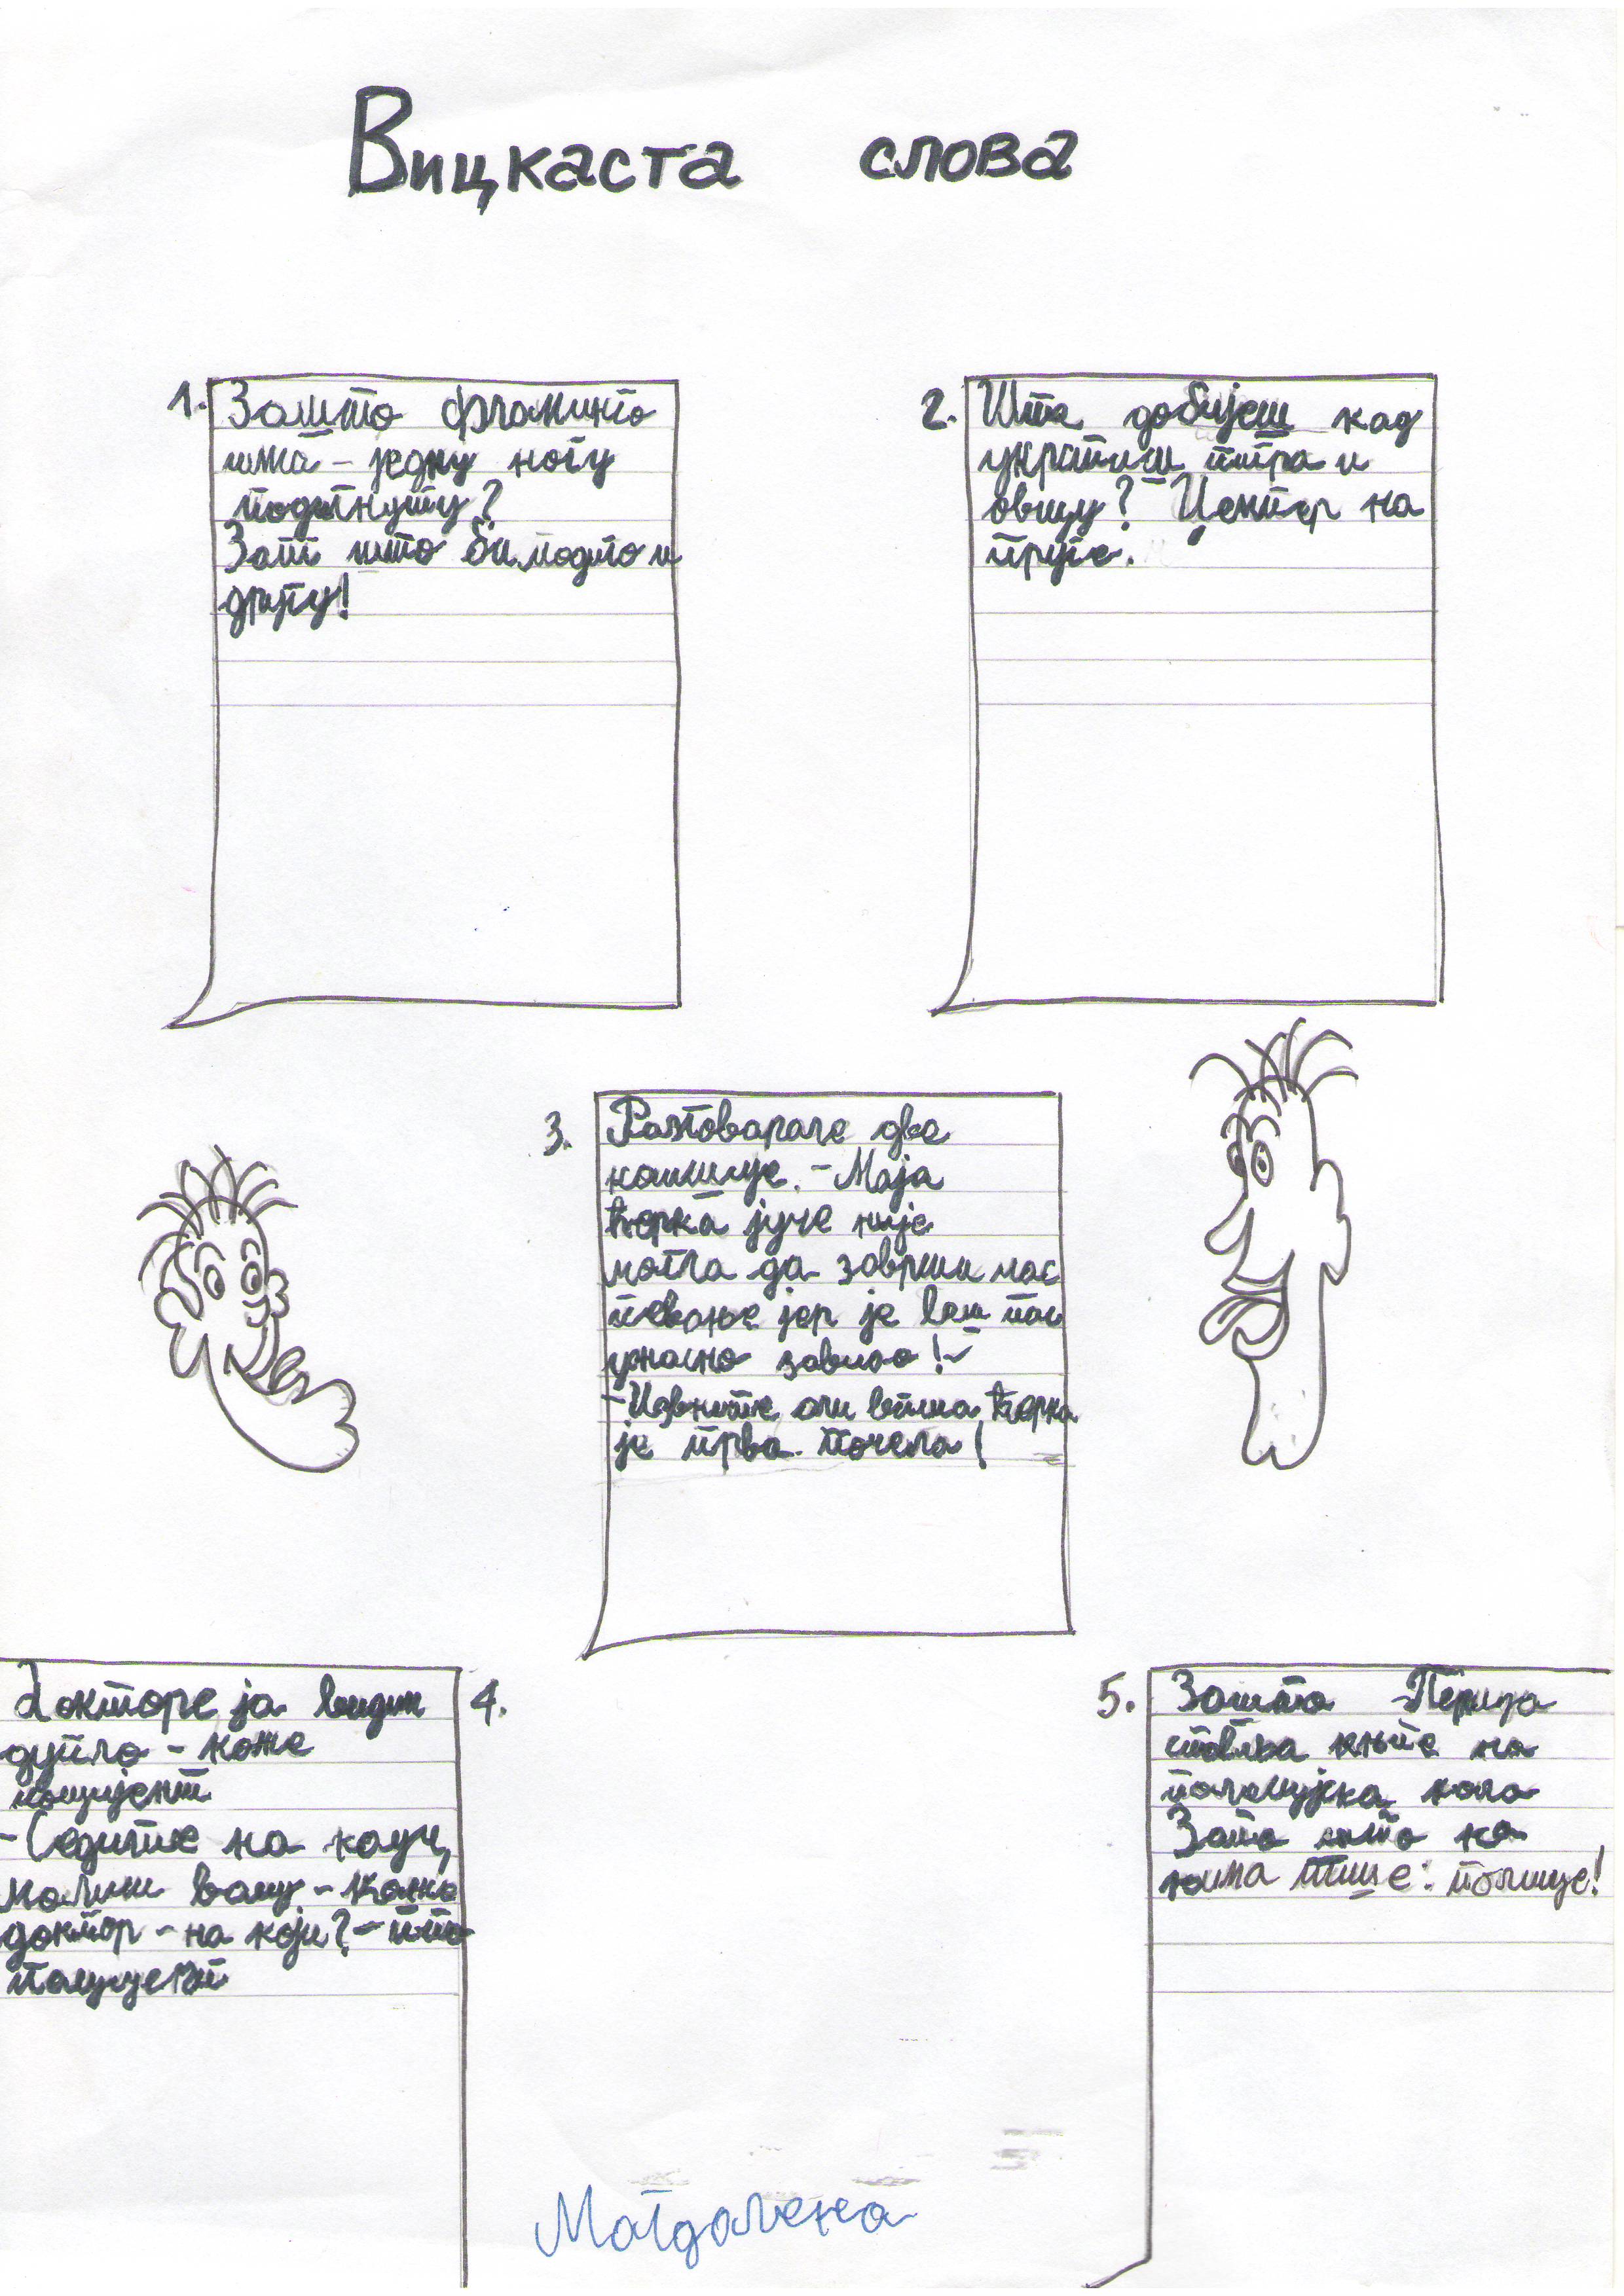 Вицкаста слова
1. Зашто фламинго
има - једну ногу
подигнуту?
Зато што би подго и
другу!
2. Шта добијеш кад
укрстиш тигра и
овцу? Џемпер на
пруге.
3. Разговарале две
комшије. - Маја
ћерка јуче није
могла да заврши час
певање јер је ваш пас
ужасно завијао!
- Извините али ваша ћерка
је прва почела!
Докторе ја видим 4.
дупло - каже
пацијент
- Седите на кауч,
молим вашу - каже
доктор - на који? - пита
пацијент
5. Зашто Перица
ставља књиге на
полицијска кола
Зато што на
њима пише: полице!
Магдалена